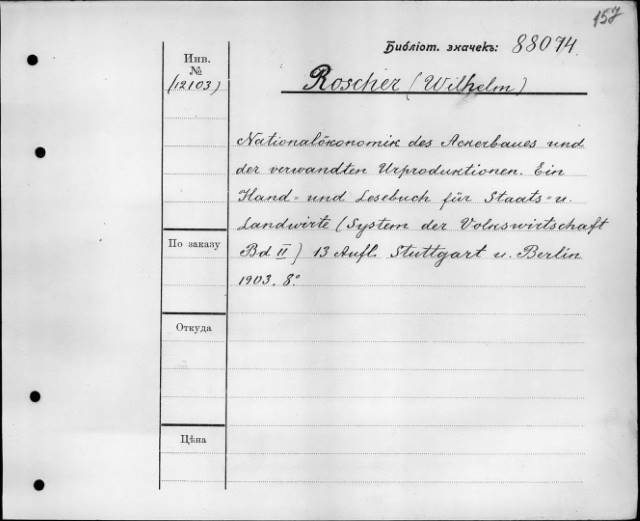 157
Библіот. значекъ: 88074.
Инв.
№
(12103)
Roscher (Wilhelm)
Nationalökonomik des Ackerbaues und
der verwandten Urproduktionen. Ein
Hand- und Lesebuch für Staats- u.
Landwirte (System der Volkswirtschaft
Bd II) 13 Aufl. Stuttgart u. Berlin
1903. 8°
По заказу
Откуда
Цѣна